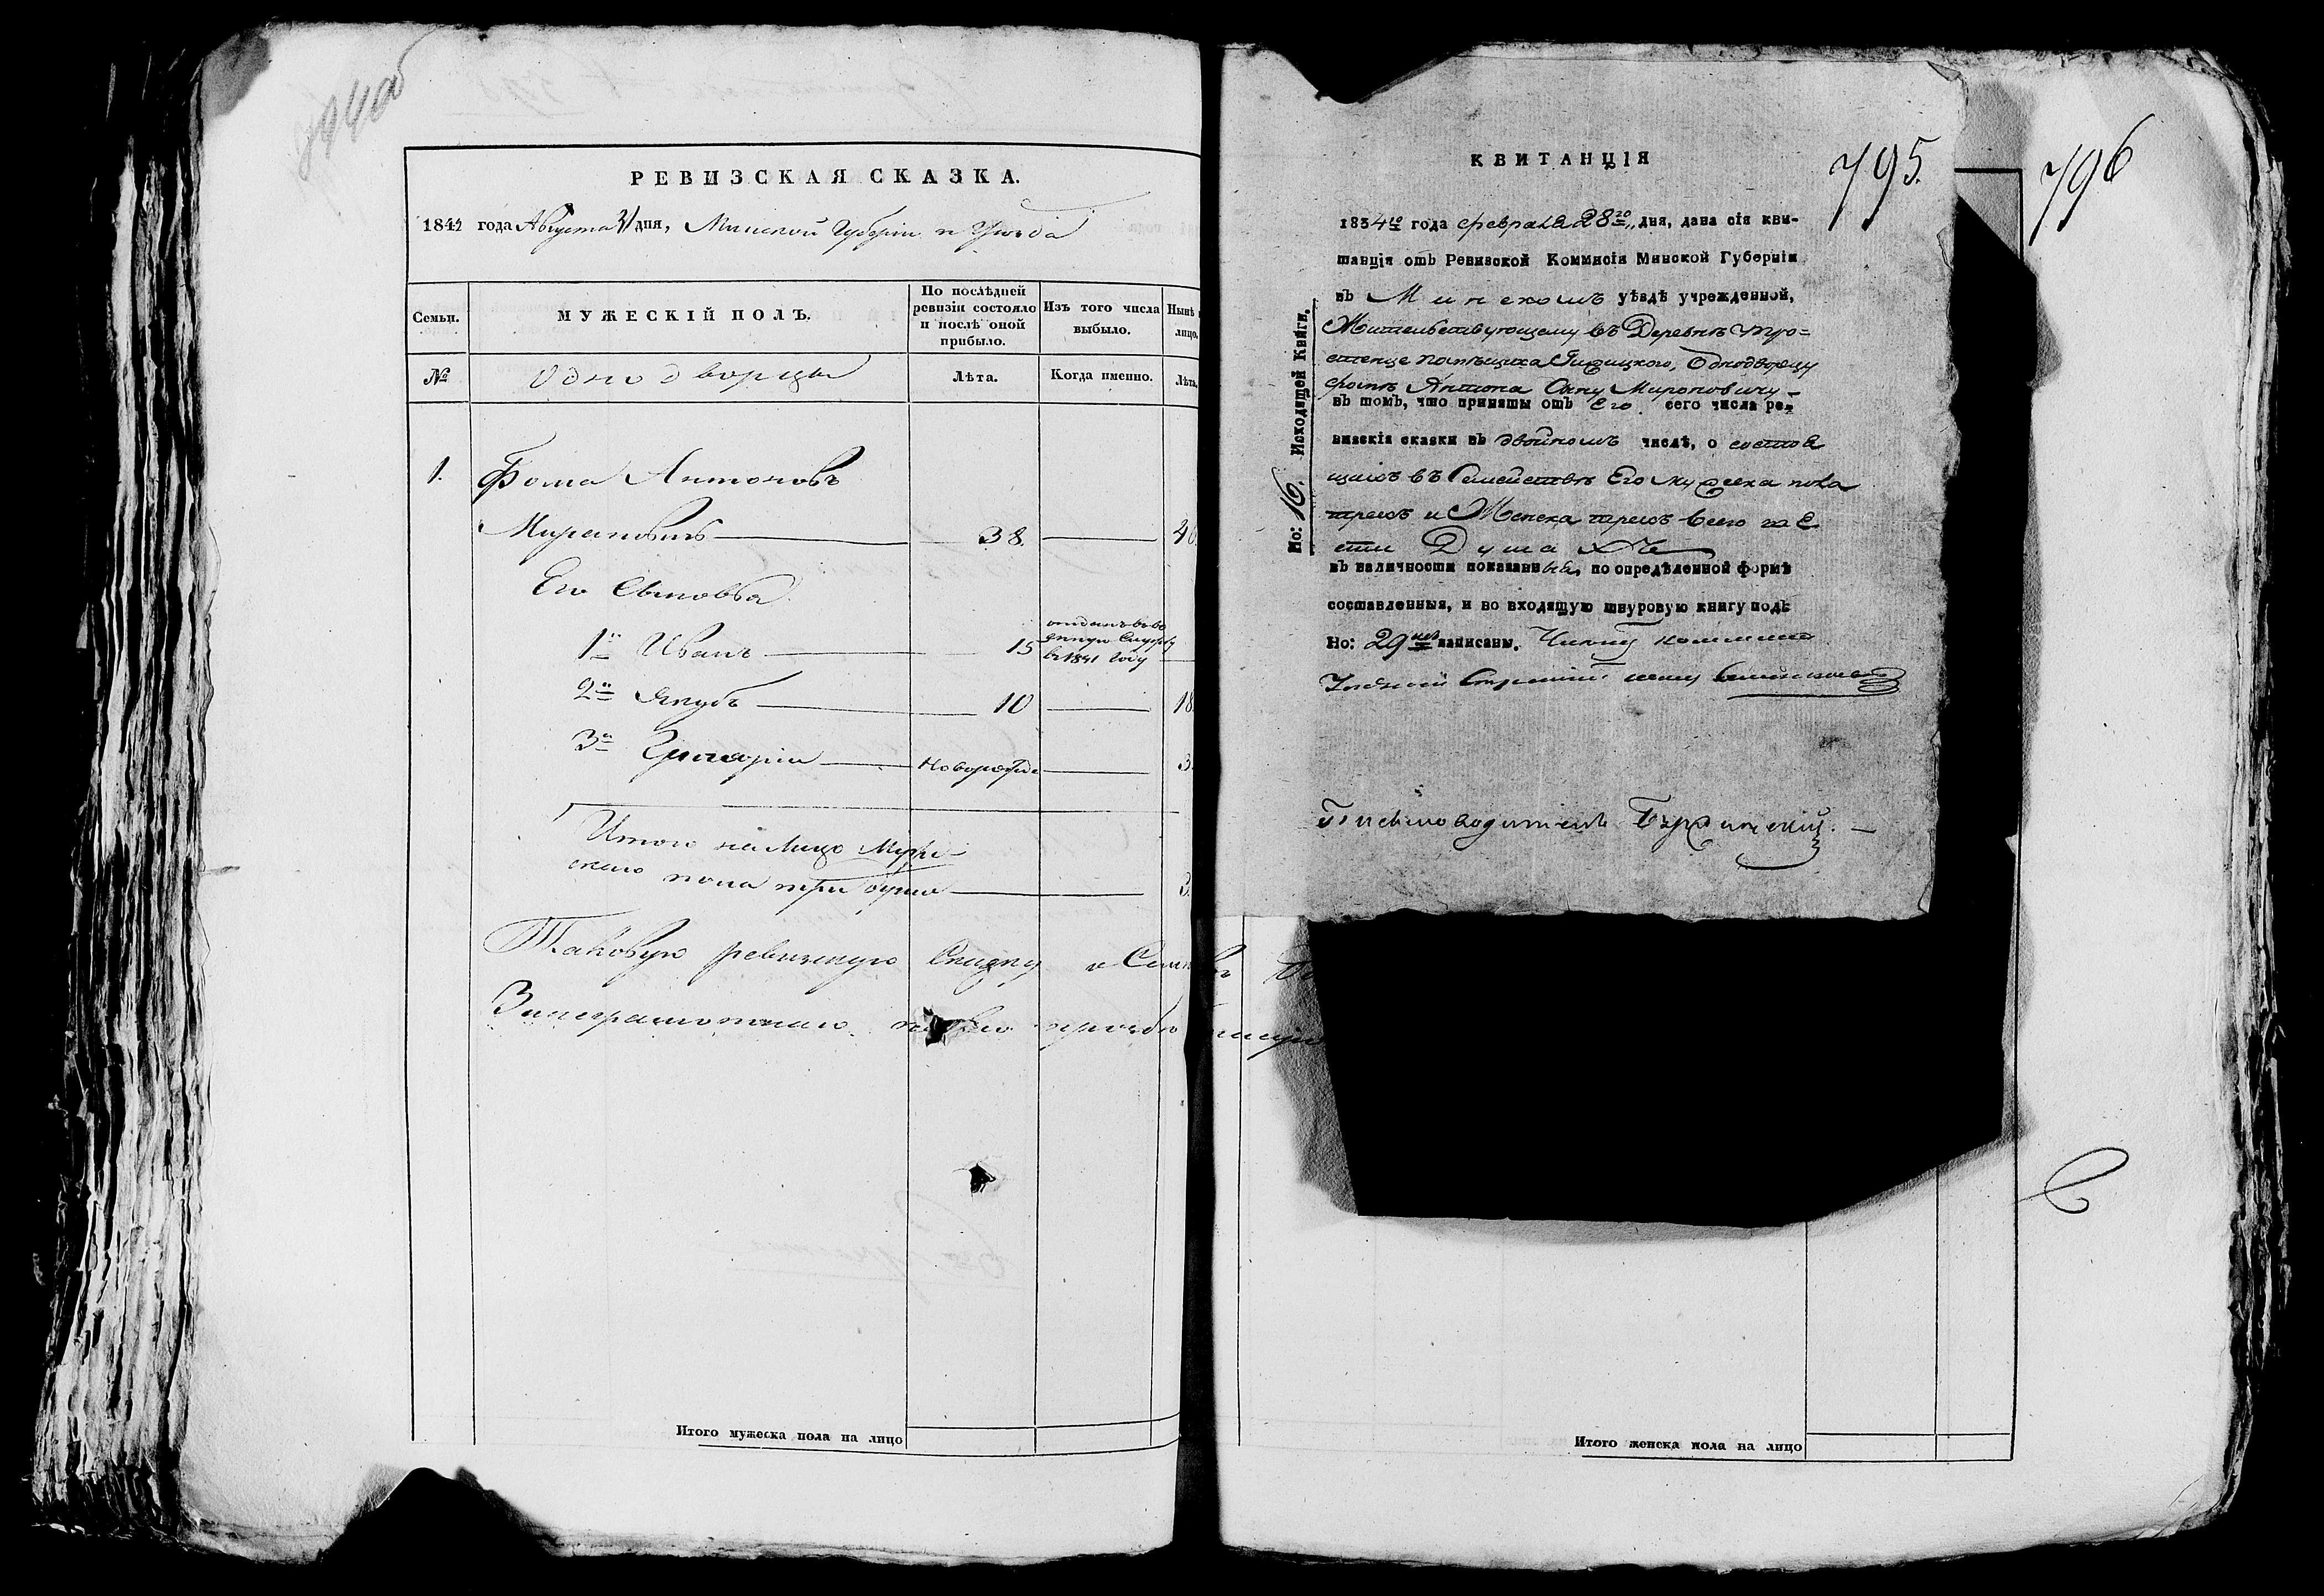 794 об
РЕВИЗСКАЯ СКАЗКА.
1842 года Августа 31 дня, Минской Губернiи и Уѣзда
Семьи.
МУЖЕСКIЙ ПОЛЪ.
По послѣдней ревизiи состояло и послѣ оной прибыло.
Изъ того числа выбыло.
Нынѣ
лицо.
№
Однодворцы
Лѣта.
Когда именно.
Лѣта.
1.
Фома Антоновъ
Мироновичъ 38. 46
Его Сыновья
1й Иванъ 15 отданъ въ во
енную Службу
въ 1841 Году
2й Якубъ 10 18
3й Григорiй Новорожде 3
Итого на лицо Муже-
скаго пола три души 3
Таковую ревизскую Сказку
неграмотнаго его прозьбѣ
Итого мужеска пола на лицо
КВИТАНЦIЯ
795.
796
1834го года февраля 28го дня, дана сiя кви-
танцiя отъ Ревизской Коммисiи Минской Губернiи
въ Минскомъ уѣздѣ учрежденной,
Жительствующему въ Деревнѣ Тро-
стенце помѣщика Однодворцу
Фомѣ Антона Сыну Мироновичу
въ томъ, что приняты отъ Его сего числа ре-
визскiя сказки въ двойномъ числѣ, о состоя
щихъ въ Семействѣ Его мужеска пола
трехъ и Женска трехъ всего ше
сти Душахъ
въ наличности показанныя, по опредѣленной формѣ
составленныя, и во входящую шнуровую книгу подъ
Но: 29мъ записаны.
Но: 16. Исходящей Книги.
Письмоводитель
Итого женска пола на лицо